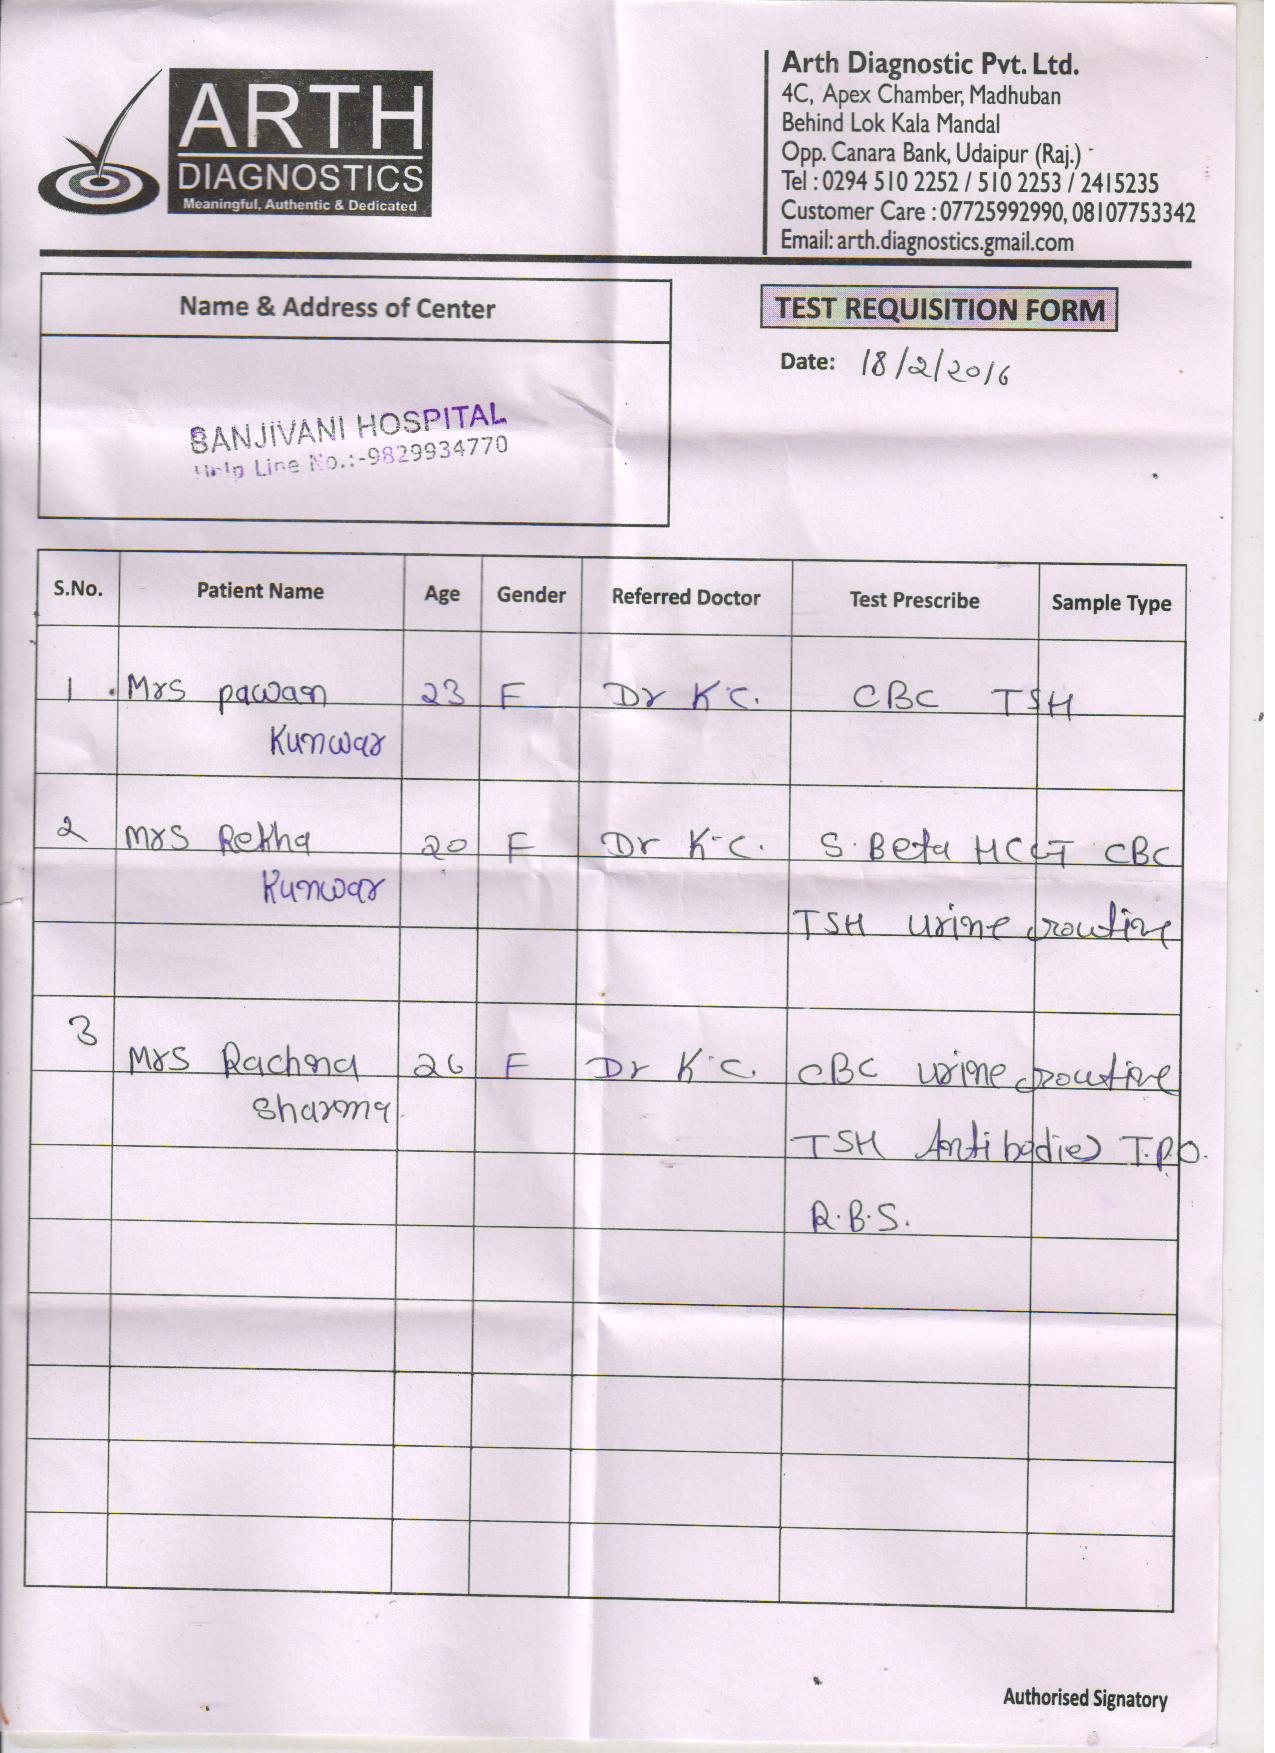 ARTH
DIAGNOSTICS
Meaningful, Authentic & Dedicated
Arth Diagnostic Pvt. Ltd.
4C, Apex Chamber, Madhuban
Behind Lok Kala Mandal
Opp. Canara Bank, Udaipur (Raj.)
Tel : 0294 510 2252 / 510 2253 / 2415235
Customer Care : 07725992990, 08107753342
Email: arth.diagnostics.gmail.com
Name & Address of Center
SANJIVANI HOSPITAL
Help Line No.:-9829934770
TEST REQUISITION FORM
Date: 18/2/2016
S.No. Patient Name Age Gender Referred Doctor Test Prescribe Sample Type
1 Mrs pawan 23 F Dr K.C. CBC TSH
Kunwar
2 Mrs Rekha 20 F Dr K.C. S. Beta HCG CBC
Kunwar
TSH urine routine
3
Mrs Rachna 26 F Dr K.C. CBC urine routine
Sharma
TSH Antibodies T.P.O.
R.B.S.
Authorised Signatory